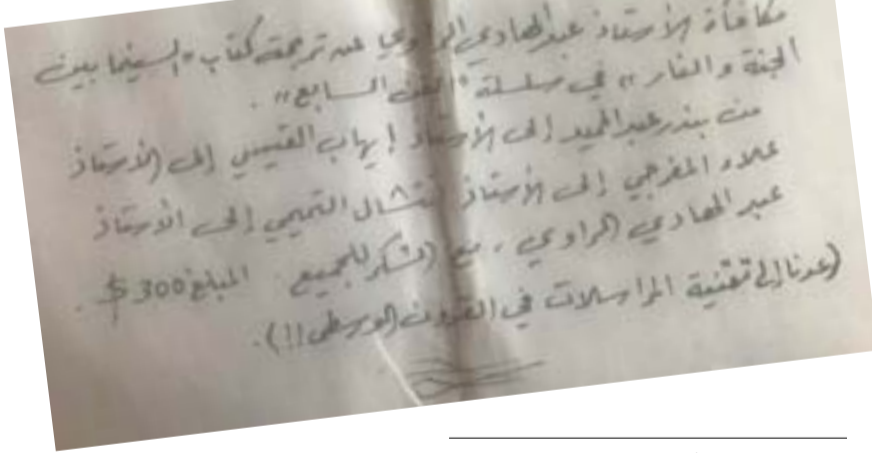 مكافأة الأستاذ عبدالهادي الراوي عن ترجمته كتاب "السينما بين
الجنة والنار" في سلسلة "الفن السابع".
من بندر عبدالحميد إلى الأستاذ إيهاب القيسي إلى الأستاذ
علاء المفرجي إلى الأستاذ انتشال التميمي إلى الأستاذ
عبد الهادي الراوي، مع الشكر للجميع المبلغ 300 $.
(عدنا إلى تقنية المراسلات في القرون الوسطى!!).